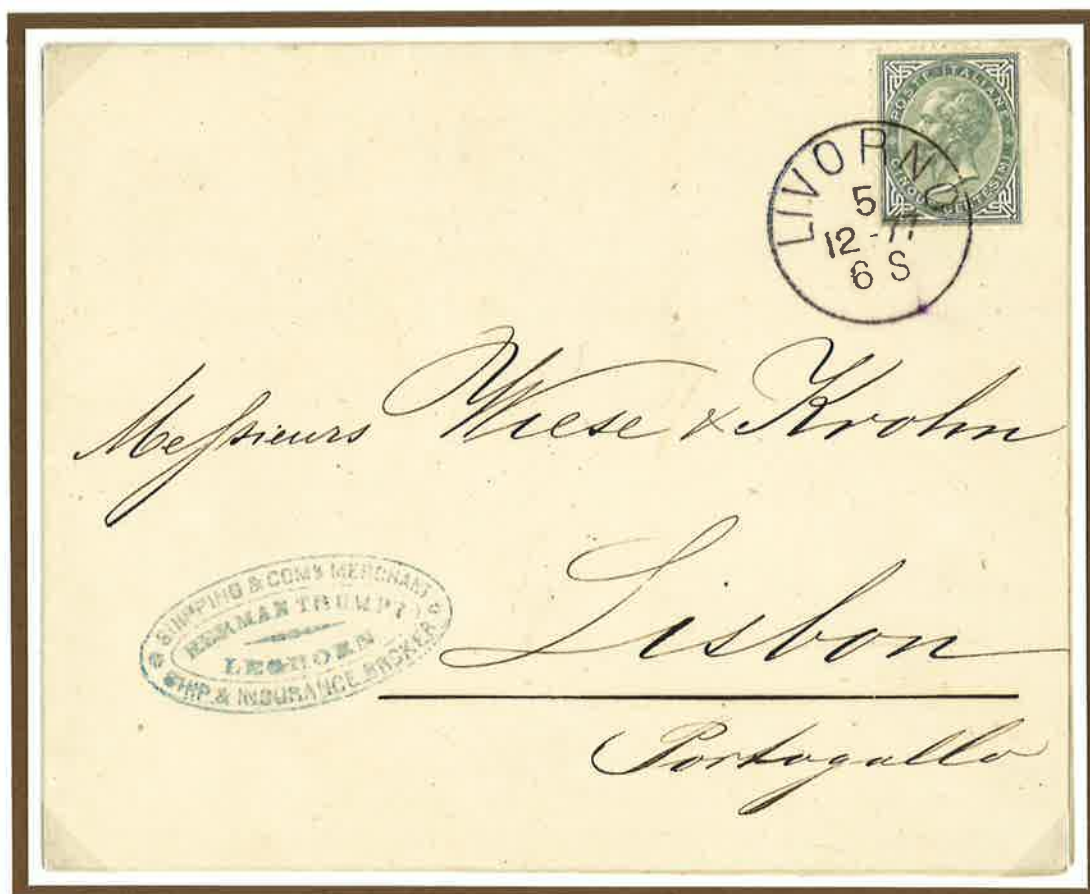 POSTE ITALIANE
CINQUE CENTESIMI
LIVORNO
5
12-77
6 S
Messieurs Wiese & Krohn
Lisbon
Portogallo
SHIPPING & COMN MERCHANT
HERMAN TRUMPY
LEGHORN
SHIP & INSURANCE BROKER